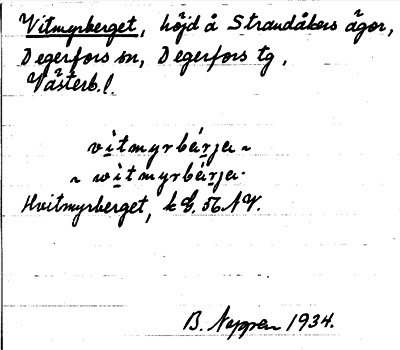 Vitmyrberget, höjd å Strandåkers ägor,
Degerfors sn, Degerfors tg,
Västerb. l.
vi̱tmyrbáṟja ~
~ wi̱tmyrbáṟja.
Hvitmyrberget, k G. 56 NV.
B. Neppen 1934.